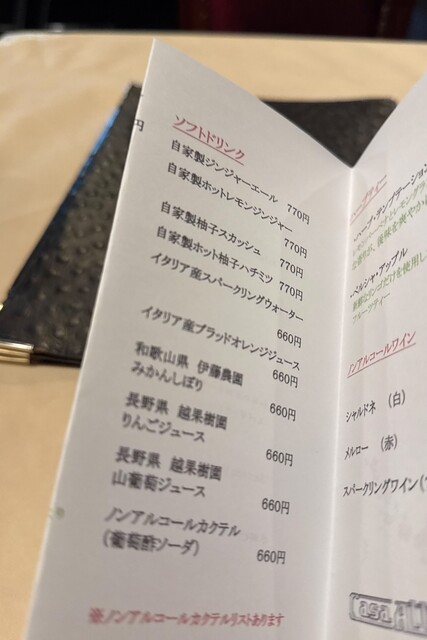 円
ソフトドリンク
自家製ジンジャーエール 770円
自家製ホットレモンジンジャー
770円
自家製柚子スカッシュ
770円
自家製ホット柚子ハチミツ 770円
イタリア産スパークリングウォーター
660円
イタリア産ブラッドオレンジジュース
660円
和歌山県 伊藤農園
みかんしぼり
660円
長野県 越果樹園
りんごジュース
660円
長野県 越果樹園
山葡萄ジュース
660円
ノンアルコールカクテル
(葡萄酢ソーダ)
660円
※ノンアルコールカクテルリストあります
ハーブ・テンプテーション
ペルシャ・アップル
フルーツティー
ノンアルコールワイン
シャルドネ (白)
メルロー (赤)
スパークリングワイン(
Casa